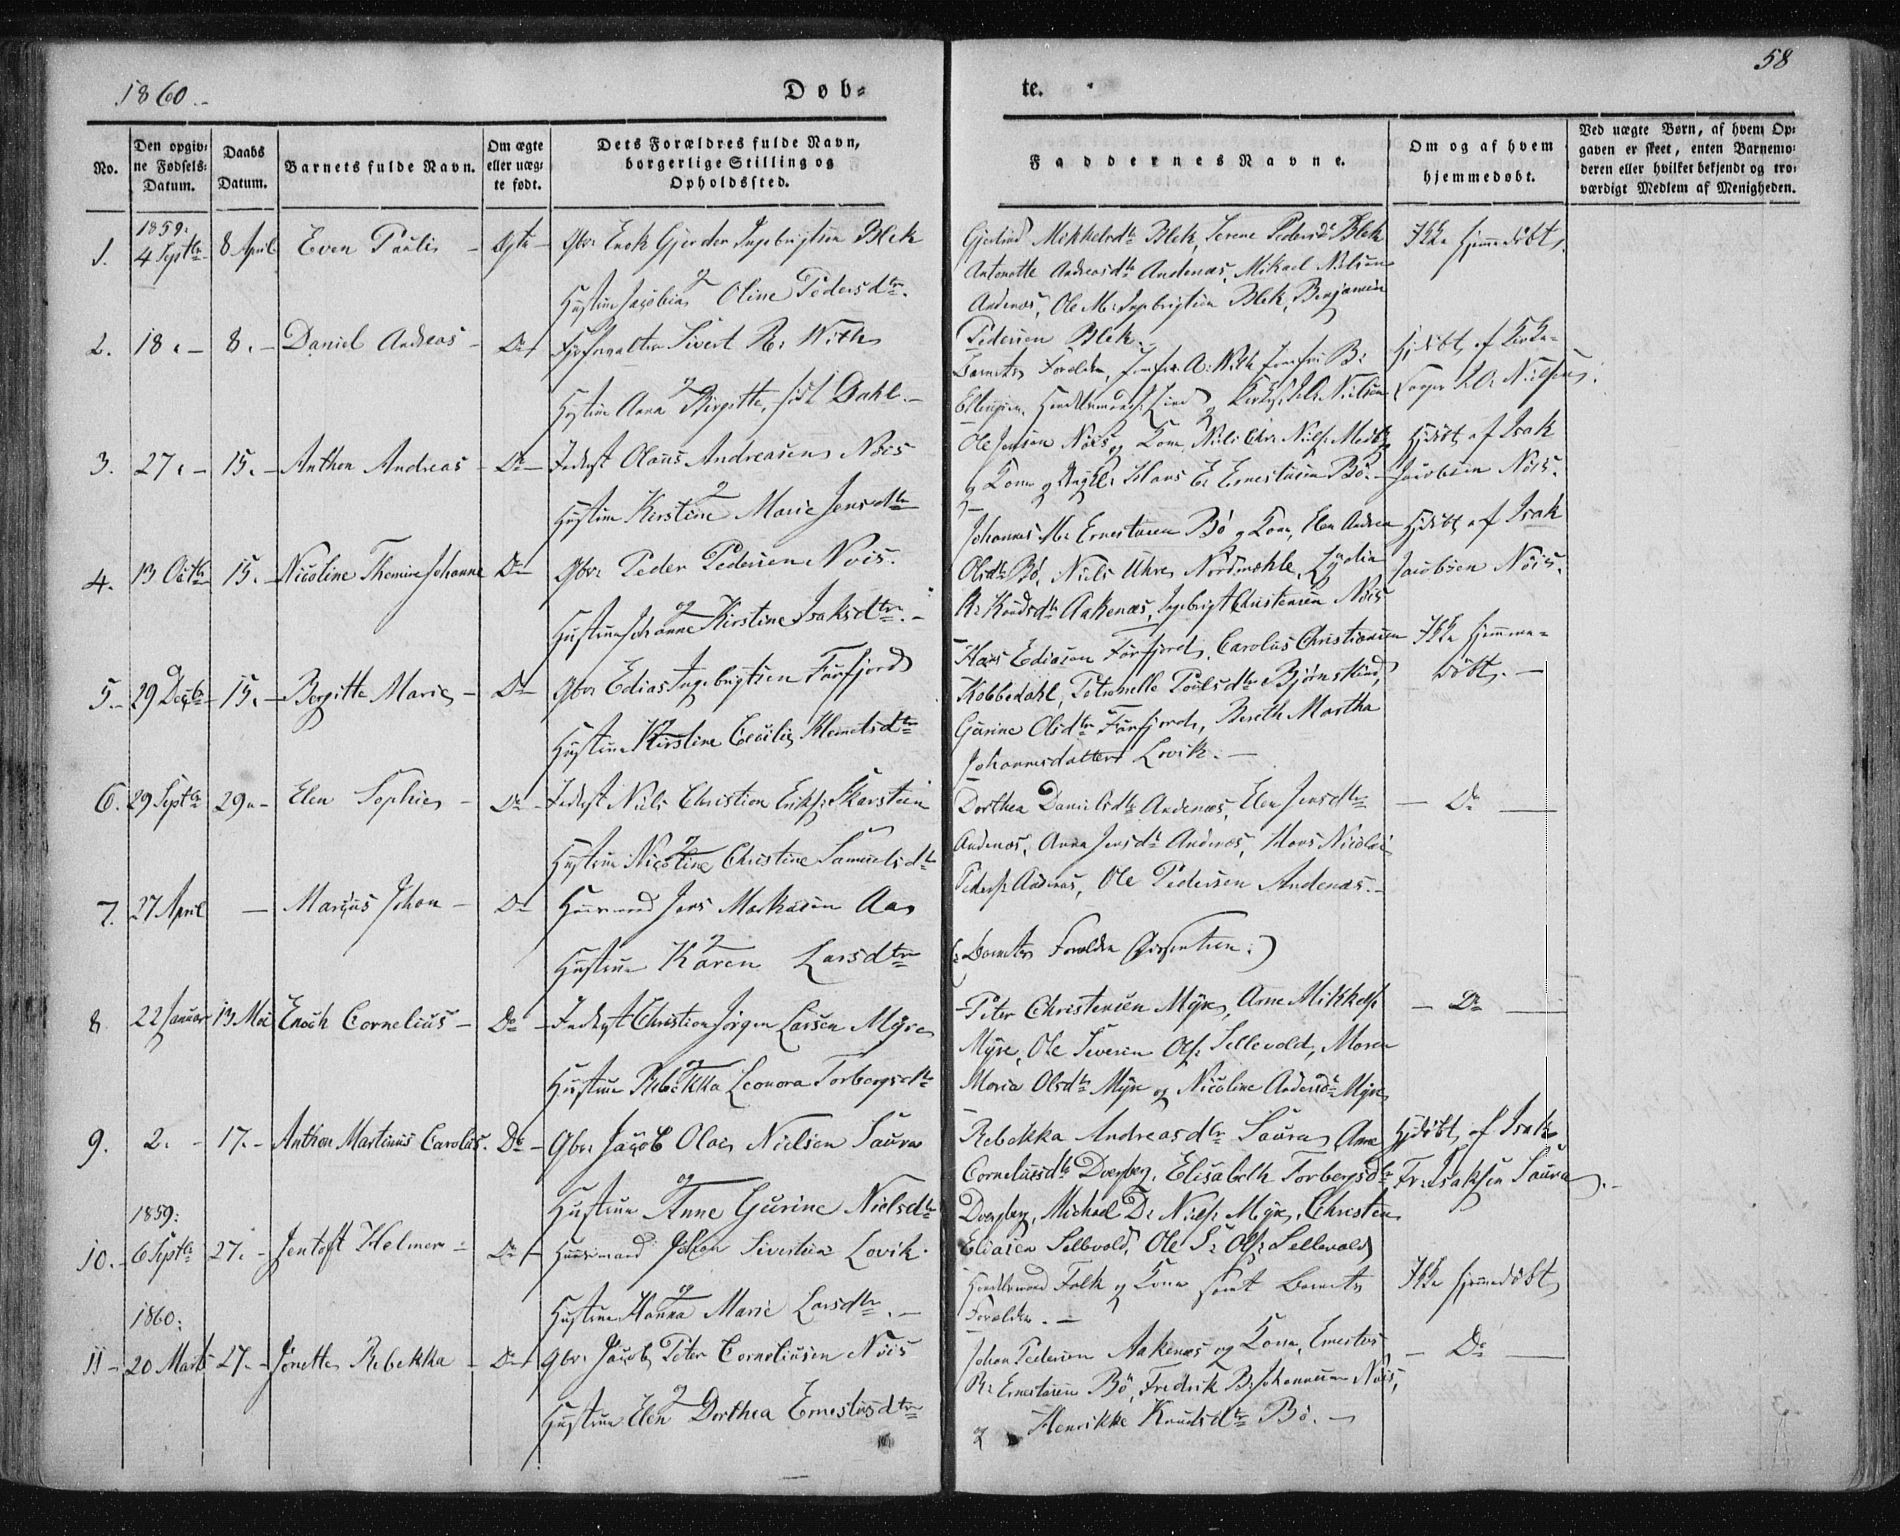 1860.-
Døb-
te.
58
No.
Den opgiv-
ne Fødsels-
Datum.
Daabs
Datum.
Barnets fulde Navn.
Om ægte
eller uæg-
te født.
Dets Forældres fulde Navn,
borgerlige Stilling og
Opholdssted.
Faddernes Navne.
Om og af hvem
hjemmedøbt.
Ved uægte Børn, af hvem Op-
gaven er skeet, enten Barnemo-
deren eller hvilket bekjendt og tro-
værdigt Medlem af Menigheden.
1859.
1. 4 Septbr 8 April Even Paulis - Ægte - Gbr: Enok Gjerder Ingebrigtsen Blek
og
Hustru Jacobine Oline Pedersdtr.
Mikkelsdtr Blek, Serene Pedersdtr Blek
Antonette Andreasdtr Andenæs, Mikael Nielsen
Andenæs, Ole M: Ingebrigtsen Blek, Benjamin
Pedersen Blek.
Ikke hjemmedøbt.
2. 18. - 8. - Daniel Andreas - Do Sivert R: With
og
Hustru Anna Birgitte, født Dahl. -
Barnets Forældre, Jomfru A: With, Jomfru B:
Ellingsen, Handelsmand Lind og Nielsen
Hjdøbt af Kirke-
sanger Nielsen.
3. 27. - 15. - Anthon Andreas - Do - Inderst Olaus Andreasen Nøis
og
Hustru Kirstine Marie Jensdtr
Ole Jensen Nøis og Kone, Niels Chr: Niels: Medby
og Kone og Ungk: Hans E: Ernestusen Bø. -
Hjdøbt af Isak
Jacobsen Nøis.
4. 13 Octbr 15. - Nicoline Themine Johanne Do Gbr: Peder Pedersen Nøis.
og
Hustru Johanne Kirstine Isaksdtr. -
Johannes M: Ernestusen Bø og Kone, Elen Andrea
Olsdtr Bø, Niels Uhre Nordmehle, Lydia
K: Knudsdtr Aakenæs, Ingebrigt Christensen Nøis
Hjdøbt af Isak
Jacobsen Nøis.
5. - 29 Decbr - 15. - Bergitte Marie - Do Gbr: Edias Ingebrigtsen Forfjord
og
Hustru Kirstine Cecilie Klemetsdtr
Hans Ediasen Forfjord, Carolus Christiansen
Kobbedahl, Petronelle Poulsdtr Bjørnskind,
Gurine Olsdtr Forfjord, Bereth Martha
Johannesdatter Lovik. -
Ikke hjemme-
døbt. -
6. 29 Septbr 29. - Elen Sophie - Do - Inderst Niels Christian Eriks: Skarstein
og
Hustru Nicoline Christine Samuelsdtr
Dorthea Danielsdtr Andenæs, Elen Jensdtr
Andenæs, Anna Jensdtr Andenæs, Hans Nicolai
Peders: Andenæs, Ole Pedersen Andenæs. -
- Do -
7. 27 April - Marius Johan - Do Huusmand Jens Markusen Aas
og
Hustru Karen Larsdtr
(: Barnets Forældre Dissentere :)
8 22 Januar 13 Mai Enoch Cornelius - Do - Inderst Christian Jørgen Larsen Myre
og
Hustrue Rebekka Leonora Torbergsdtr
Peter Christensen Myre, Arne Mikkels:
Myre, Ole Severin Ols: Sellevold, Maren
Maria Olsdtr Myre og Nicoline Andersdtr Myre
- Do -
9. 2. - 17. - Anthon Martinus Carolus. Do - Gbr: Jacob Olai Nielsen Saura
og
Hustrue Anne Gurine Nielsdtr
Rebekka Andreasdtr Saura, Anne
Corneliusdtr Dverberg, Elisabeth Torbergsdtr
Dverberg, Michael D: Niels: Myre, Christen
Eliasen Sellevold, Ole S: Ols: Sellevold
Hjdøbt af Isak
Fr: Isaksen Saura. -
1859:
10. - 6 Septbr 27. - Jentoft Helmer - Do - Huusmand Johan Sivertsen Lovik.
og
Hustrue Hanna Marie Larsdtr. -
Handelsmand Falk og Kone samt Barnets
Forældre. -
Ikke hjemmedøbt
1860:
11 - 20 Marts 27. - Jonette Rebekka - Do - Gbr: Jacob Peter Corneliusen Nøis
og
Hustrue Elen Dorthea Ernestusdtr
Johan Pedersen Aakenæs og Kone, Ernestus
R: Ernestusen Bø, Fredrik B: Johannesen Nøis,
og Henrikke Knudsdtr Bø. -
- Do -